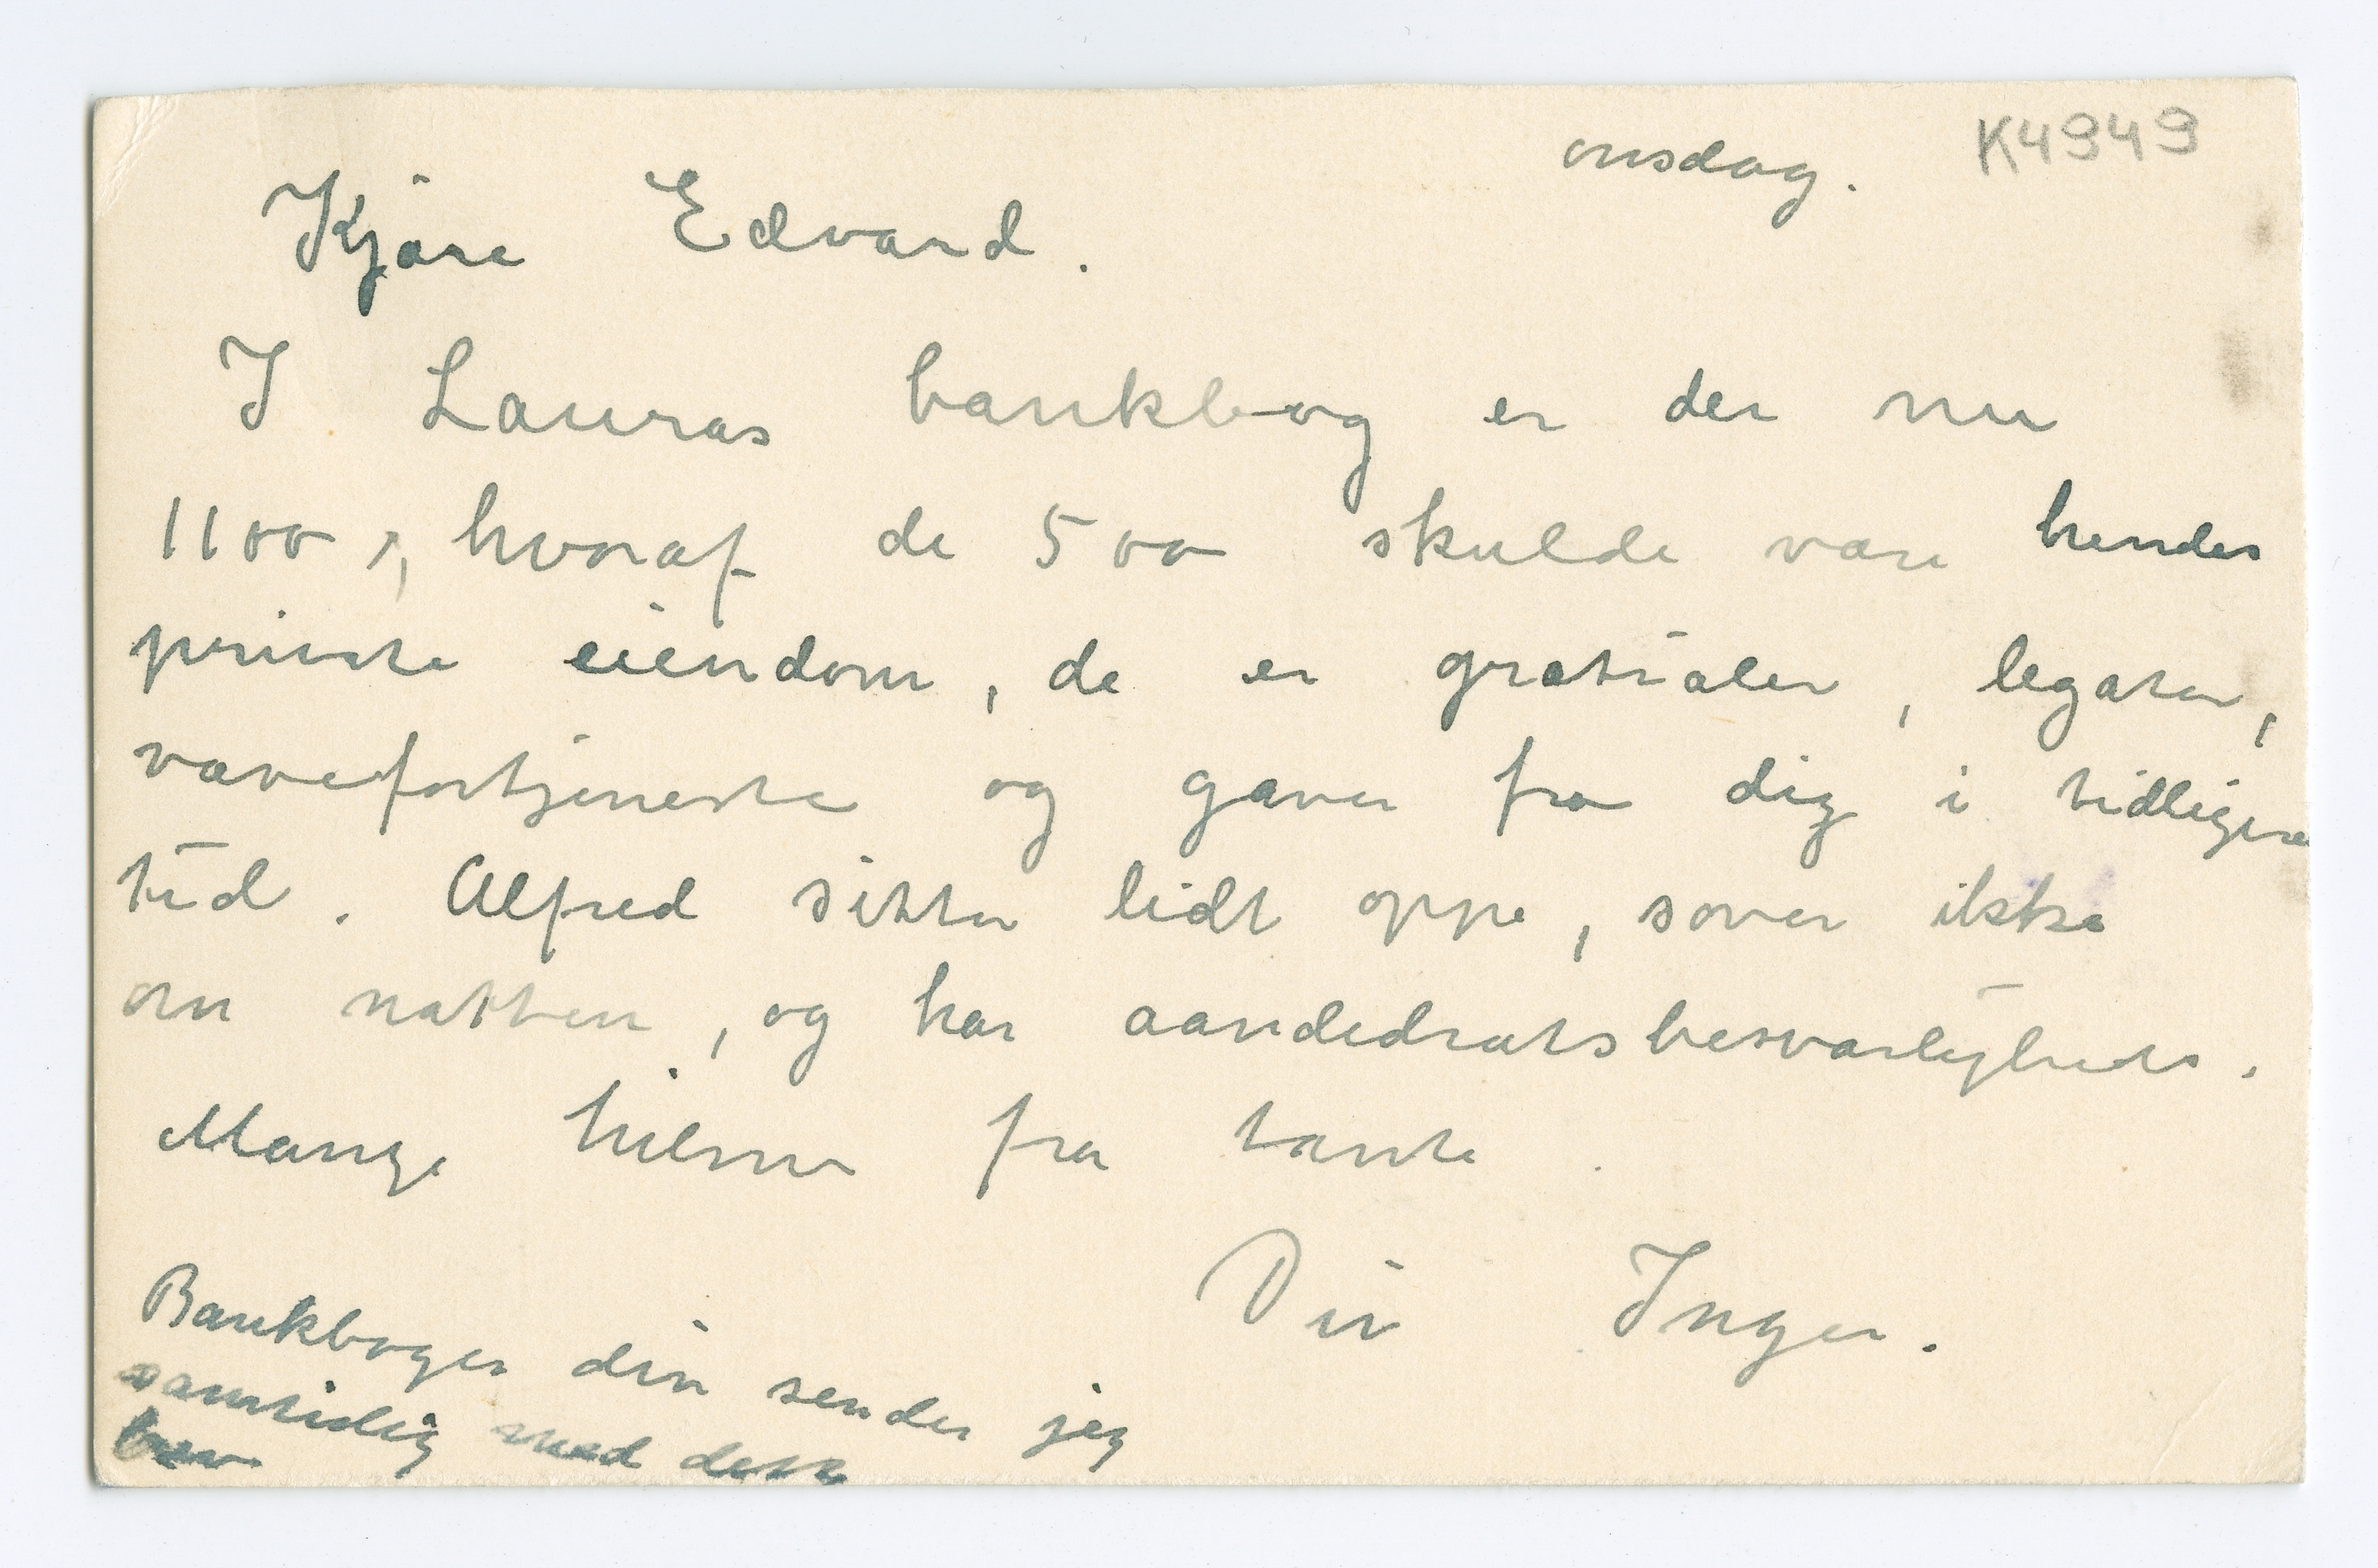 onsdag. K4949
Kjære Edvard.
I Lauras bankbog er der nu
1100 , hvoraf de 500 skulde være hendes
private eiendom, de er gratialer, legater,
vævefortjeneste og gaver fra dig i tidligere
tid. Alfred sitter lidt oppe, sover ikke
om natten, og har aandedrætsbesværligheder.
Mange hilsner fra tante.
Din Inger.
Bankbogen din sender jeg
samtidig med dette
brev